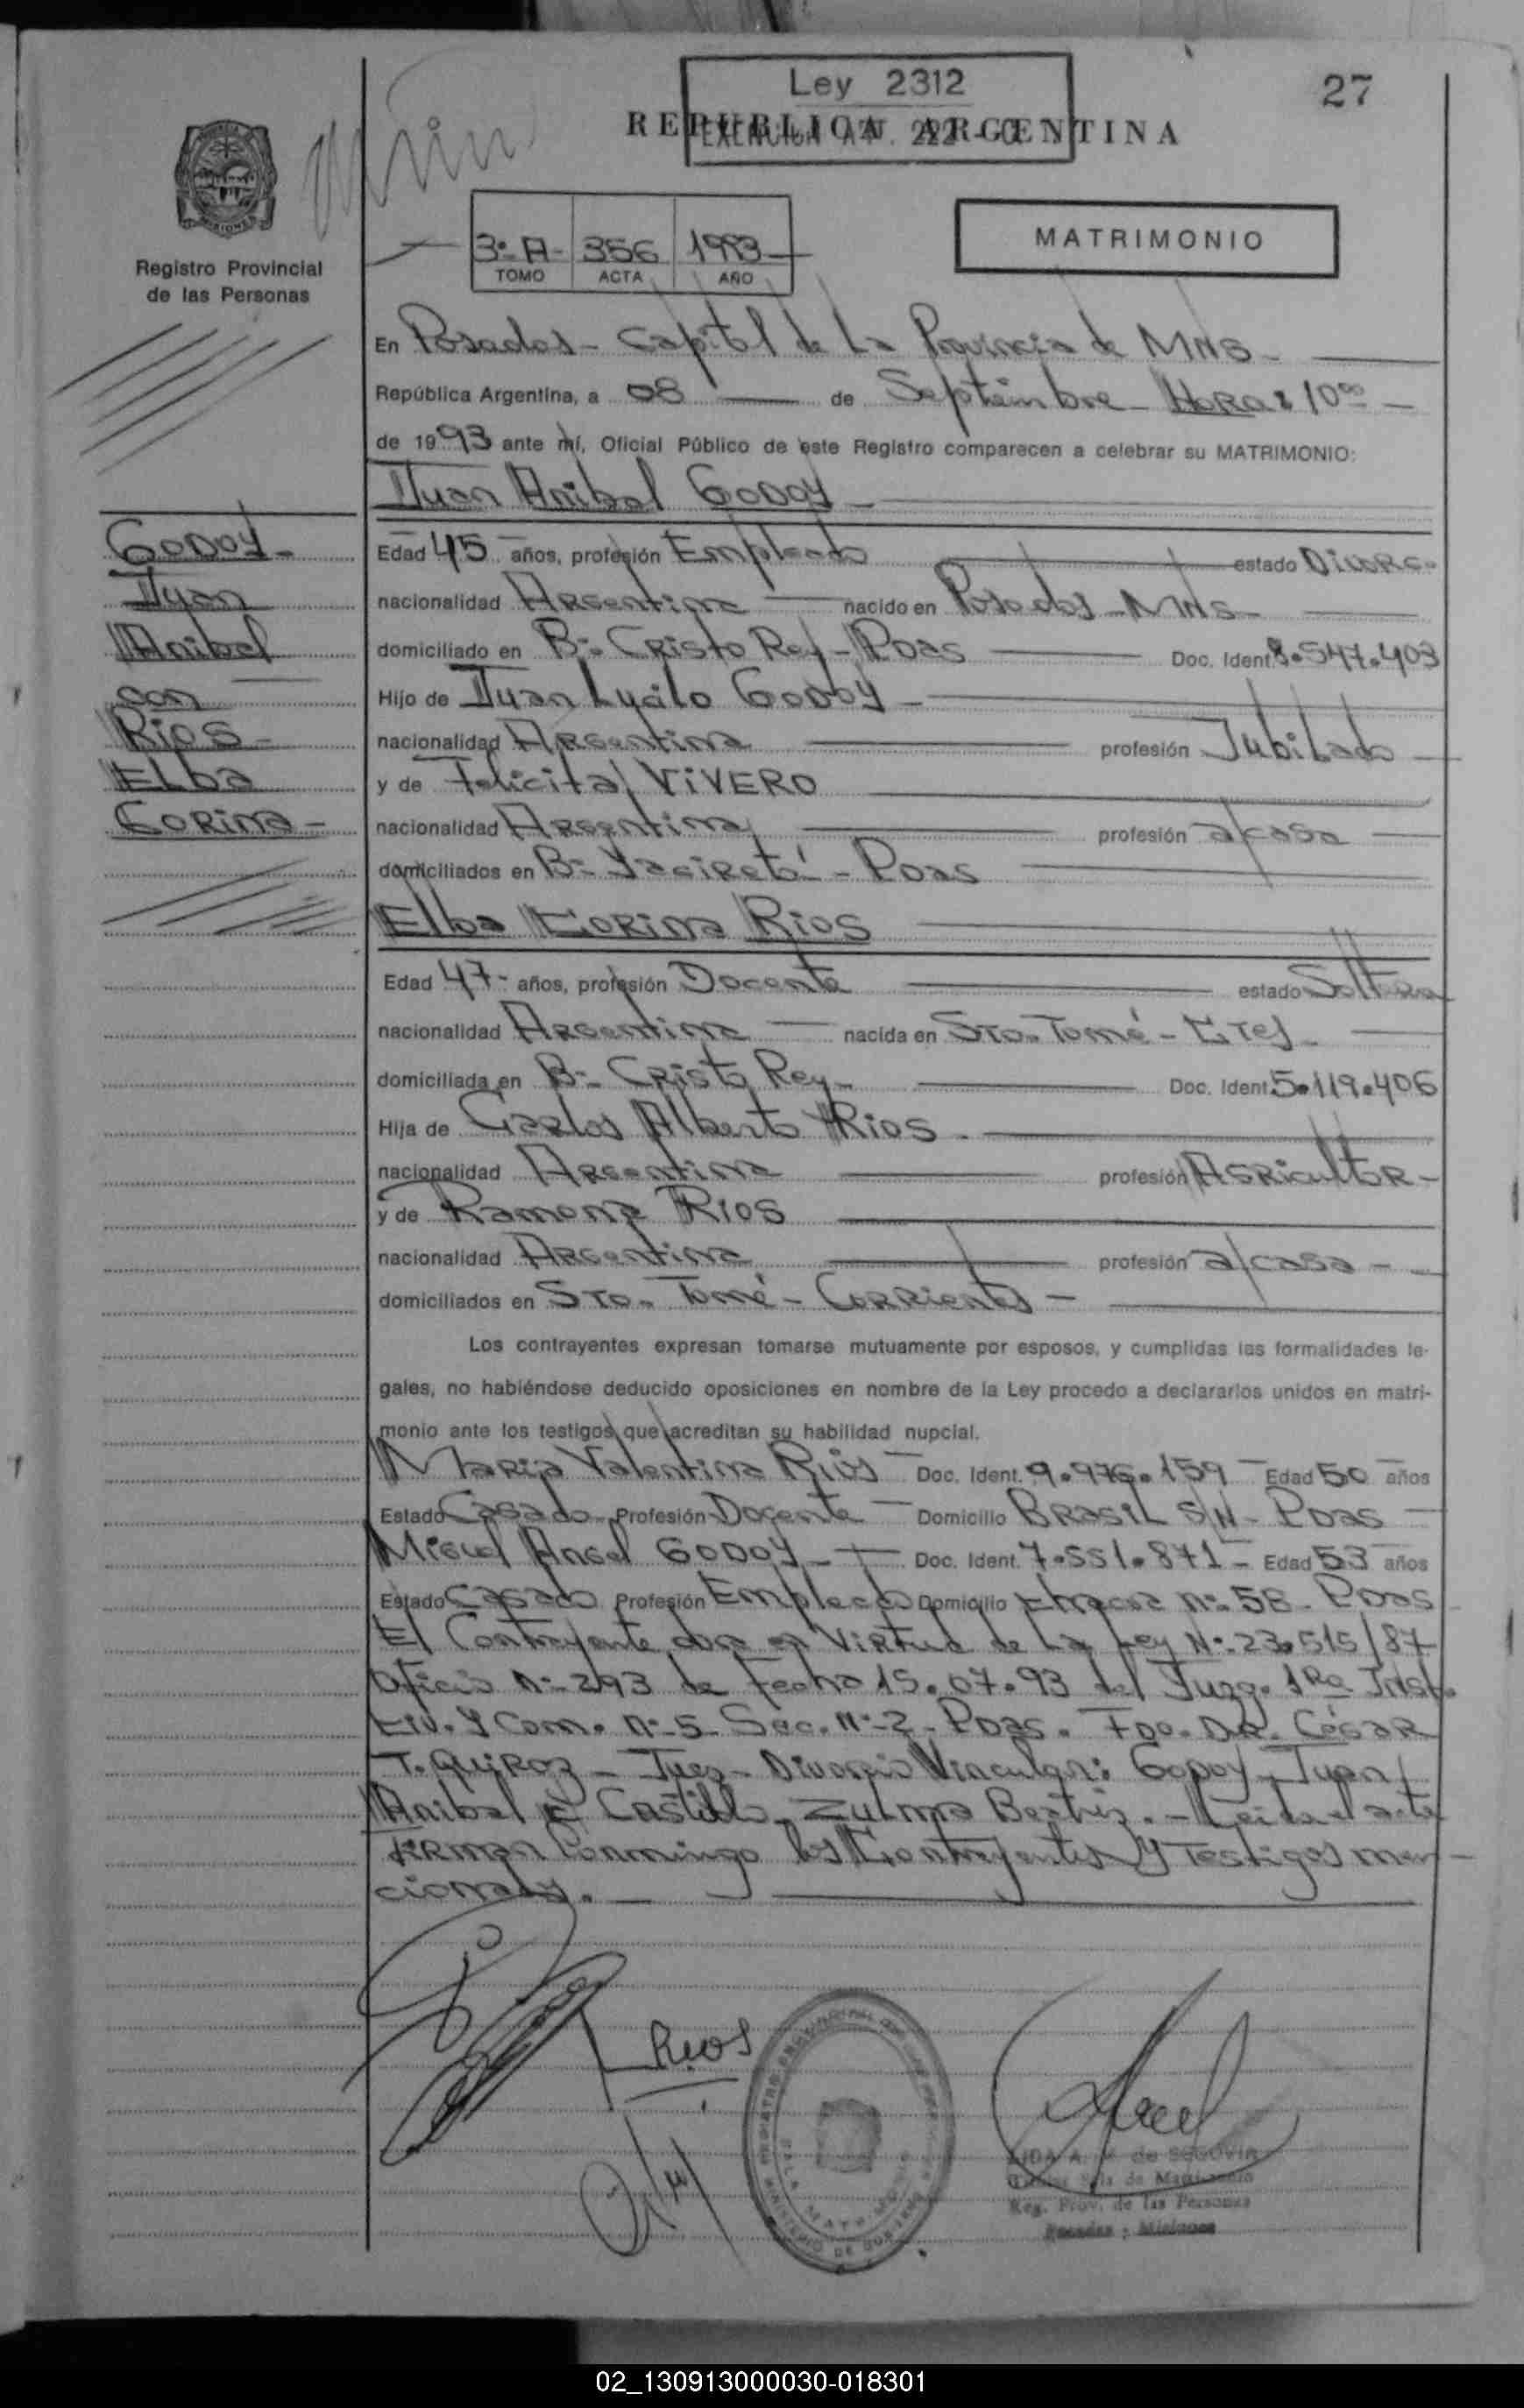 27
Ley 2312
REPUBLICA ARGENTINA
Registro Provincial
de las Personas
3º A- 356 1993
TOMO ACTA AÑO
MATRIMONIO
En Posadas - Capital de La Provincia de MNS -
República Argentina, a 08 de Septiembre - HORA: 10⁰⁰ -
de 1993 ante mí, Oficial Público de este Registro comparecen a celebrar su MATRIMONIO:
Juan Anibal GODOY -
GODOY -
Juan
Anibal
con
Rios -
Elba
Corina -
Edad 45 años, profesión Empleado estado Divorc.
nacionalidad Argentina nacido en Posadas - MNS -
domiciliado en Bº Cristo Rey - Pdas Doc. Ident. 8.547.403
Hijo de Juan Lucilo GODOY -
nacionalidad Argentina profesión Jubilado
y de Felicita VIVERO
nacionalidad Argentina profesión a/casa
domiciliados en Bº Yaciretá - Pdas
Elba Corina Rios
Edad 47- años, profesión Docente estado Soltera
nacionalidad Argentina nacida en Sto. Tomé - Ctes -
domiciliada en Bº Cristo Rey - Doc. Ident. 5.119.406
Hija de Carlos Alberto Rios -
nacionalidad Argentina profesión Agricultor -
y de Ramona Rios
nacionalidad Argentina profesión a/casa -
domiciliados en Sto. Tomé - Corrientes -
Los contrayentes expresan tomarse mutuamente por esposos, y cumplidas las formalidades le-
gales, no habiéndose deducido oposiciones en nombre de la Ley procedo a declararlos unidos en matri-
monio ante los testigos que acreditan su habilidad nupcial.
Maria Valentina Rios Doc. Ident. 9.976.159 Edad 50 años
Estado Casado Profesión Docente Domicilio BRASIL S/N - Pdas
Miguel Angel GODOY - Doc. Ident. 7.551.871 - Edad 53 años
Estado Casado Profesión Empleado Domicilio Nº 58 - Pdas
El Contrayente en Virtud de La Ley Nº 23.515/87
Oficio Nº 293 de Fecha 15.07.93 del Juzg. 1Ra Inst.
Civ. y Com. Nº 5 - Sec. Nº 2 - Pdas. Fdo. DR. César
T. Quiroz - Juez - Divorcio Vincular: Godoy, Juan
Anibal c/ Castillo, Zulma Beatriz. - Leida el acta
Firman Conmingo los Contrayentes y Testigos men-
cionados. -
Rios
de SEGOVIA
Sala de Matrimonio
Reg. Prov. de las Personas
Posadas - Misiones
02_130913000030-018301